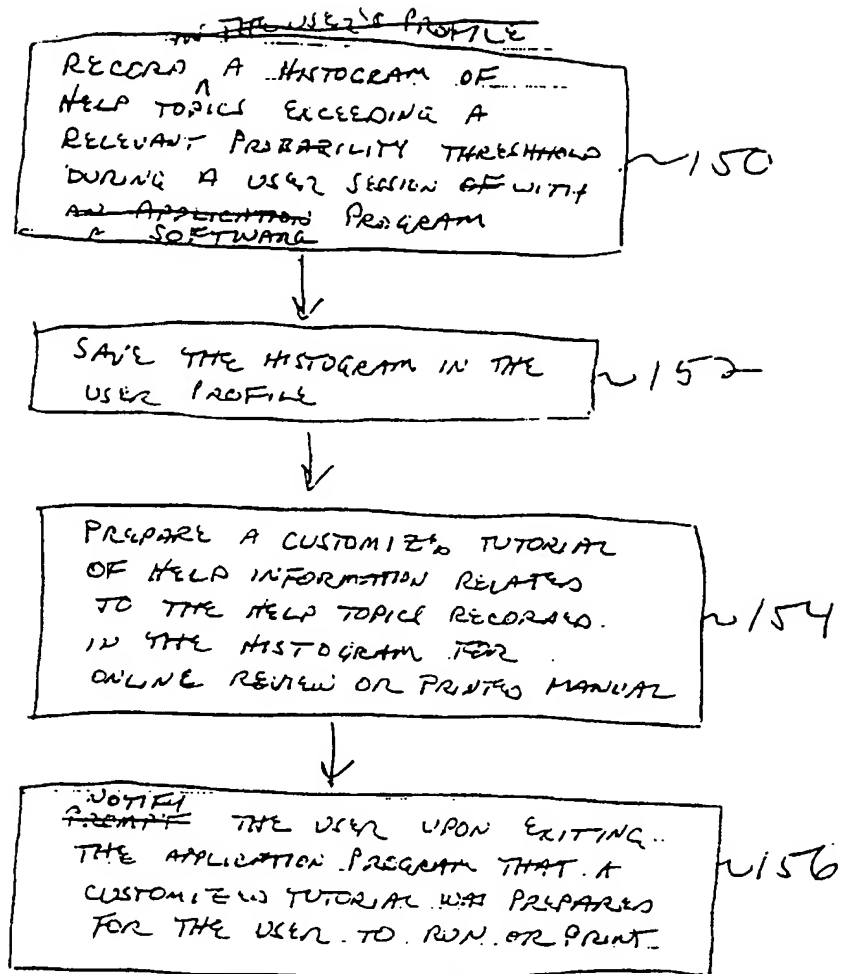 IN THE USER'S PROFILE
RECORD ^ A HISTOGRAM OF
HELP TOPICS EXCEEDING A
RELEVANT PROBABILITY THRESHHOLD
DURING A USER SESSION OF WITH
AN APPLICATION PROGRAM
A SOFTWARE
~150
SAVE THE HISTOGRAM IN THE
USER PROFILE
~152
PREPARE A CUSTOMIZED TUTORIAL
OF HELP INFORMATION RELATED
TO THE HELP TOPICS RECORDED
IN THE HISTOGRAM FOR
ONLINE REVIEW OR PRINTED MANUAL
~154
NOTIFY
PROMPT THE USER UPON EXITING
THE APPLICATION PROGRAM THAT A
CUSTOMIZED TUTORIAL WAS PREPARED
FOR THE USER TO RUN OR PRINT
~156